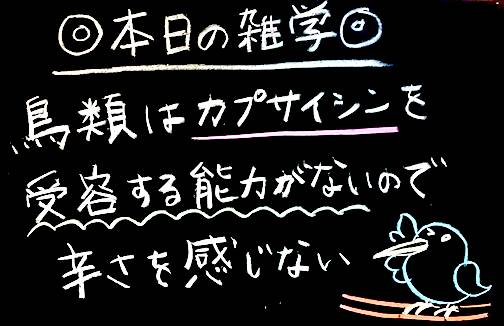 ◎本日の雑学◎
鳥類はカプサイシンを
受容する能力がないので
辛さを感じない